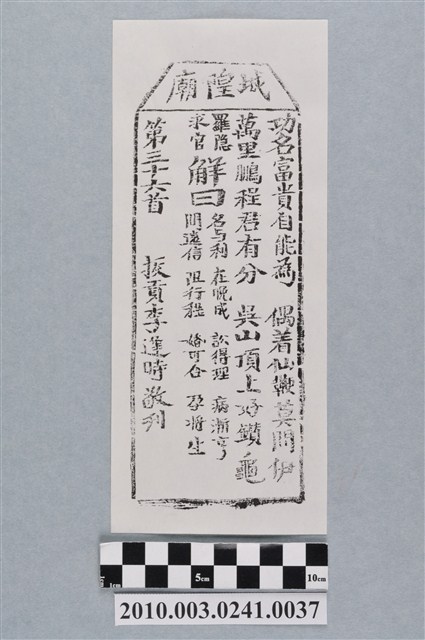 城隍廟
功名富貴自能為 偶着仙鞭莫問伊
萬里鵬程君有分 吳山頂上好鑽龜
羅隱
求官
解曰
名与利 在晚成 訟得理 病漸亨
問遠信 阻行程 婚可合 孕將生
第三十六首 拔貢李逢時敬刋
1cm 5cm 10cm
2010.003.0241.0037